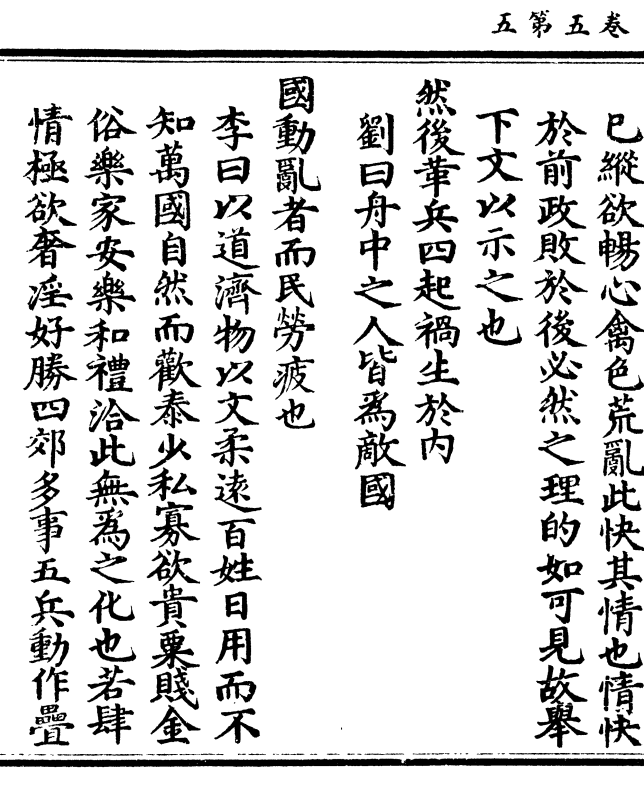 卷五第五
已縱欲暢心禽色荒亂此快其情也情快
於前政敗於後必然之理的如可見故舉
下文以示之也
然後革兵四起禍生於內
劉曰舟中之人皆爲敵國
國動亂者而民勞疲也
李曰以道濟物以文柔遠百姓日用而不
知萬國自然而歡泰少私寡欲貴粟賤金
俗樂家安樂和禮洽此無爲之化也若肆
情極欲奢淫好勝四郊多事五兵動作疊